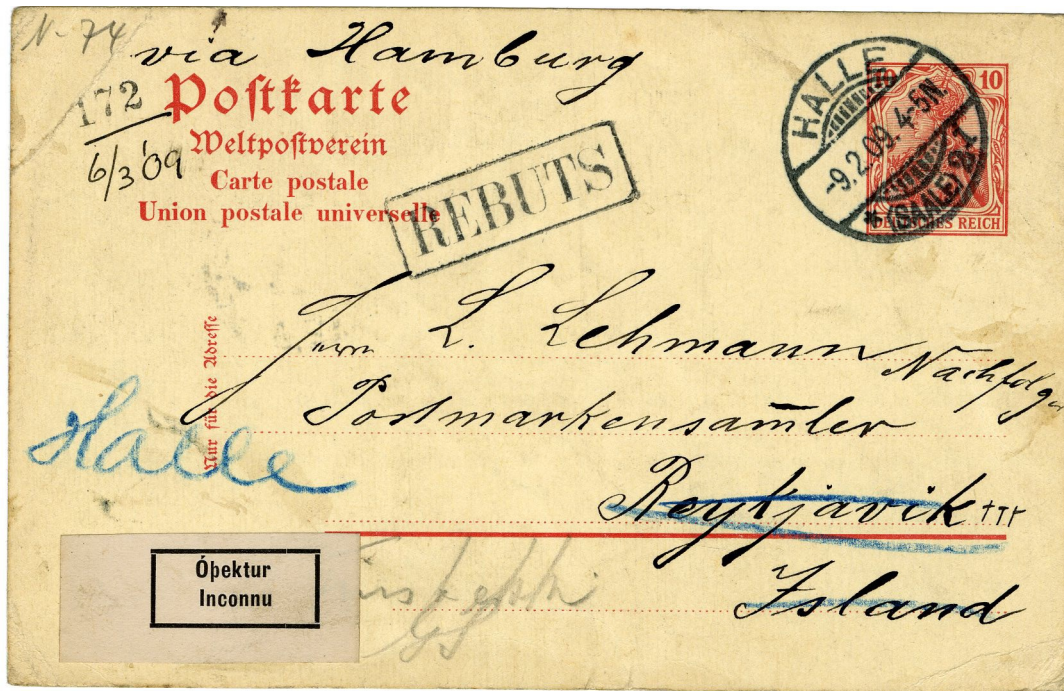 N. 74
via Hamburg
172
6/3 '09
Poſtkarte
Weltpoſtverein
Carte postale
Union postale universelle
REBUTS
HALLE
-9.2.09. 4-5N.
* (SAALE) 2
10 10
DEUTSCHES REICH
Nur für die Adreſſe
Herrn L. Lehmann Nachfolger
Postmarkensam̄ler
Halle
Reykjavik
Island
Óþektur
Inconnu